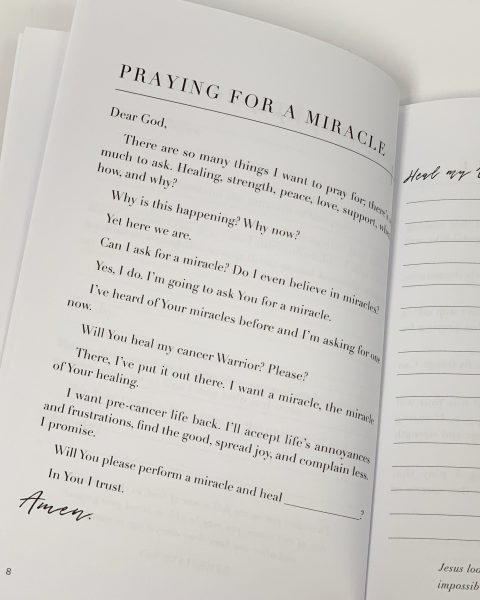 PRAYING FOR A MIRACLE
Dear God,
There are so many things I want to pray for; there's
much to ask. Healing, strength, peace, love, support,
how, and why?
Why is this happening? Why now?
Yet here we are.
Can I ask for a miracle? Do I even believe in miracles?
Yes, I do. I'm going to ask You for a miracle.
I've heard of Your miracles before and I'm asking for one
now.
Will You heal my cancer Warrior? Please?
There, I've put it out there. I want a miracle, the miracle
of Your healing.
I want pre-cancer life back. I'll accept life's annoyances
and frustrations, find the good, spread joy, and complain less.
I promise.
Will You please perform a miracle and heal ____________?
In You I trust.
Amen.
8
Heal my
Jesus